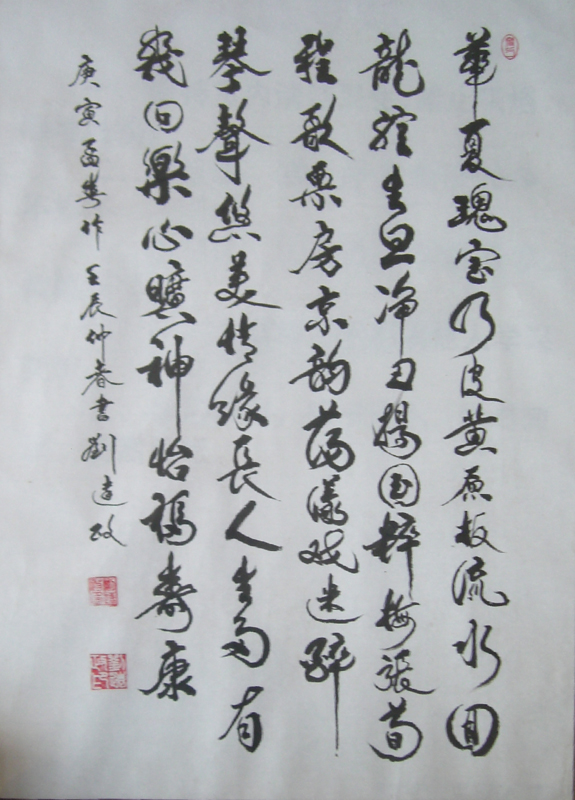 華夏瑰宝乃皮黄原板流水回
龍腔生旦净丑揚国粹梅張荀
程歌票房京韵蕩漾戏迷醉
琴聲悠美情缘長人生多有
幾回樂心曠神怡福壽康
庚寅孟春作壬辰仲春書劉政